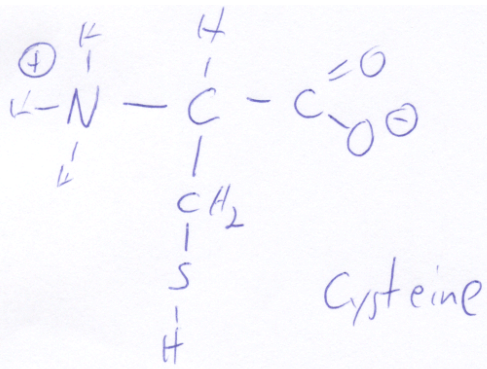 H H
⊕
H–N–C–C=O
H O ⊖
CH₂
S
H
Cysteine